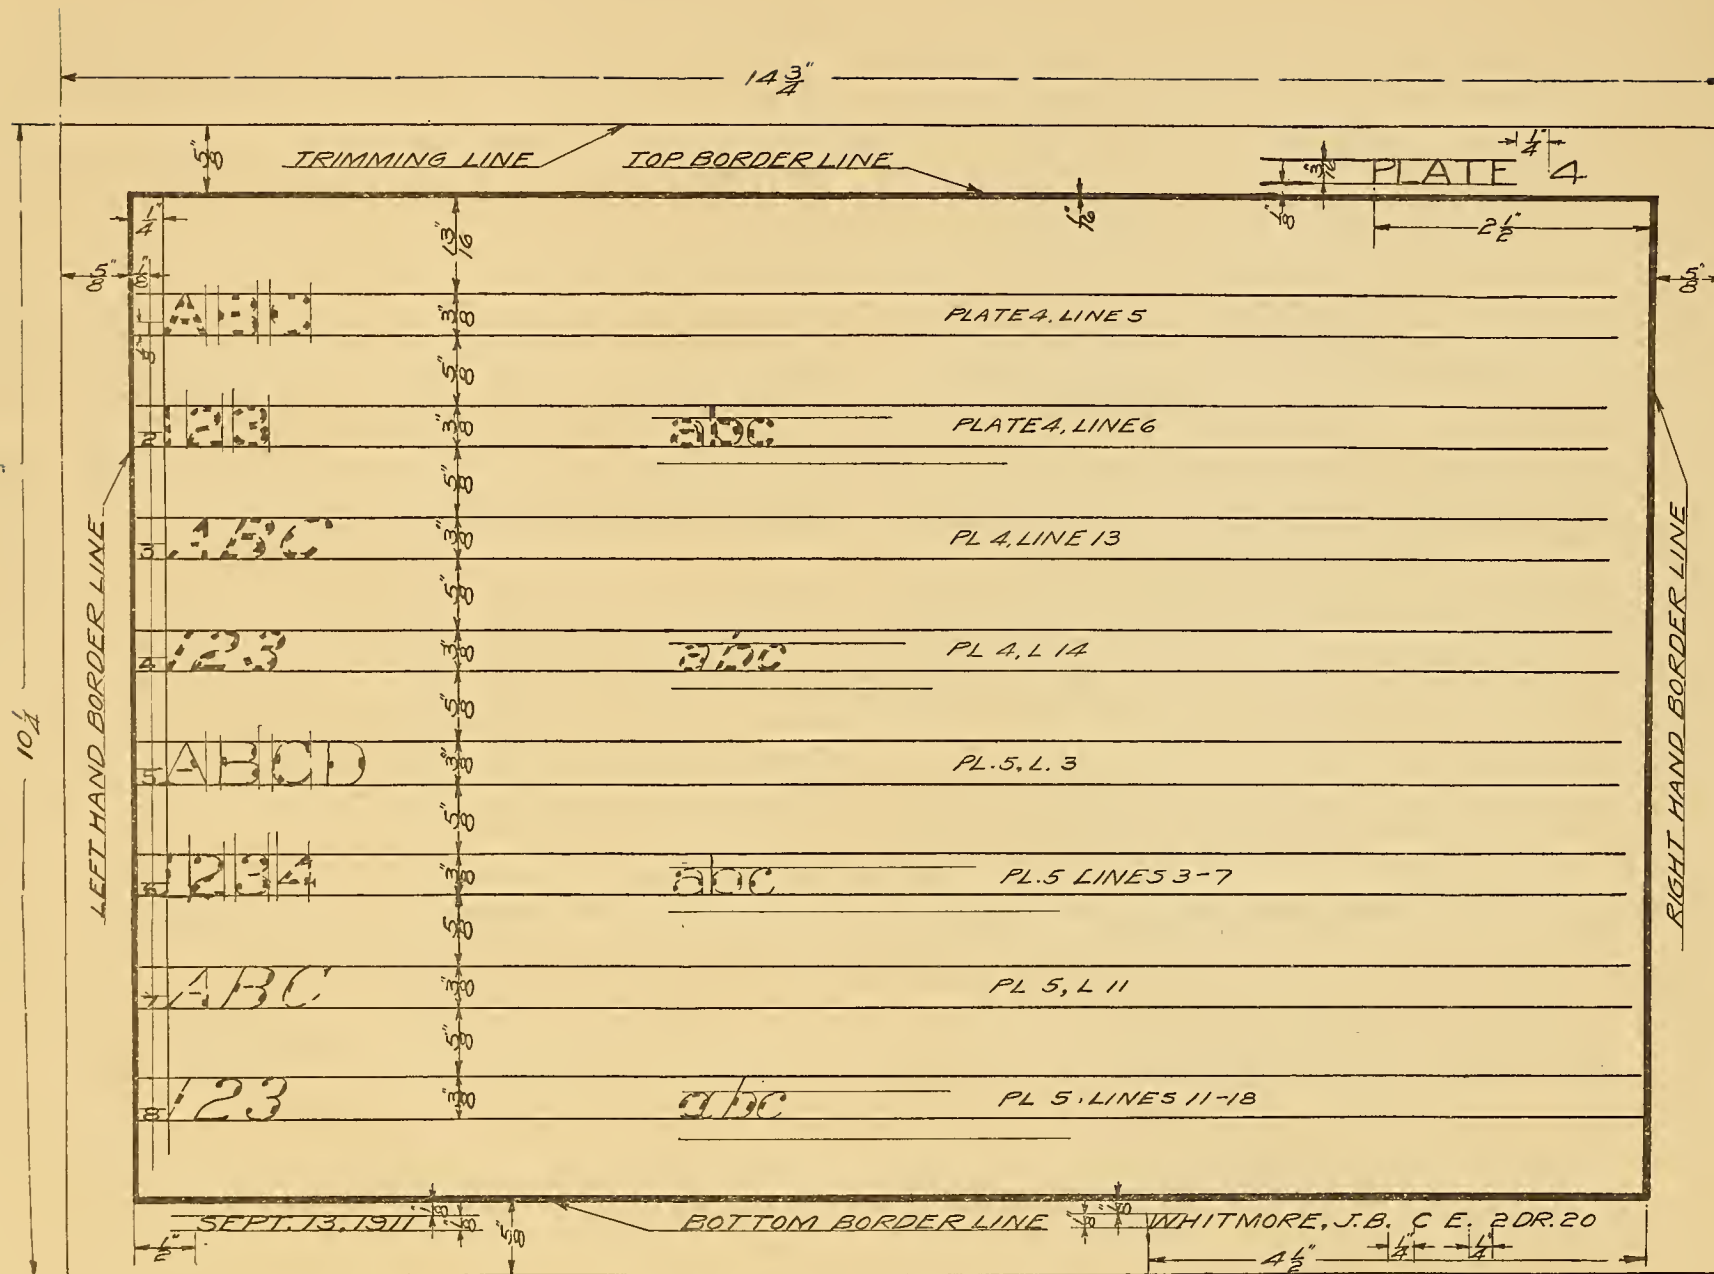 14 3/4"
5/8" TRIMMING LINE TOP BORDER LINE 3/16" PLATE 4 1/4"
1/4" 13/16" 1/16" 1/8" 2 1/2"
5/8" 1/8" 5/8"
1 A B C 3/8" PLATE 4, LINE 5
1/8" 5/8"
2 1 2 3 3/8" abc PLATE 4, LINE 6
5/8"
3 ABC 3/8" PL 4, LINE 13
5/8"
4 123 3/8" abc PL 4, L 14
5/8"
5 ABCD 3/8" PL. 5, L. 3
5/8"
6 1234 3/8" abc PL. 5 LINES 3-7
5/8"
7 ABC 3/8" PL 5, L 11
5/8"
8 123 3/8" abc PL 5, LINES 11-18
LEFT HAND BORDER LINE
RIGHT HAND BORDER LINE
10 1/4
SEPT. 13, 1911 1/8" 1/8" 5/8" BOTTOM BORDER LINE 1/8" 1/8" WHITMORE, J.B. C E. 2 DR. 20
1/2" 4 1/2" 1/4" 1/4"